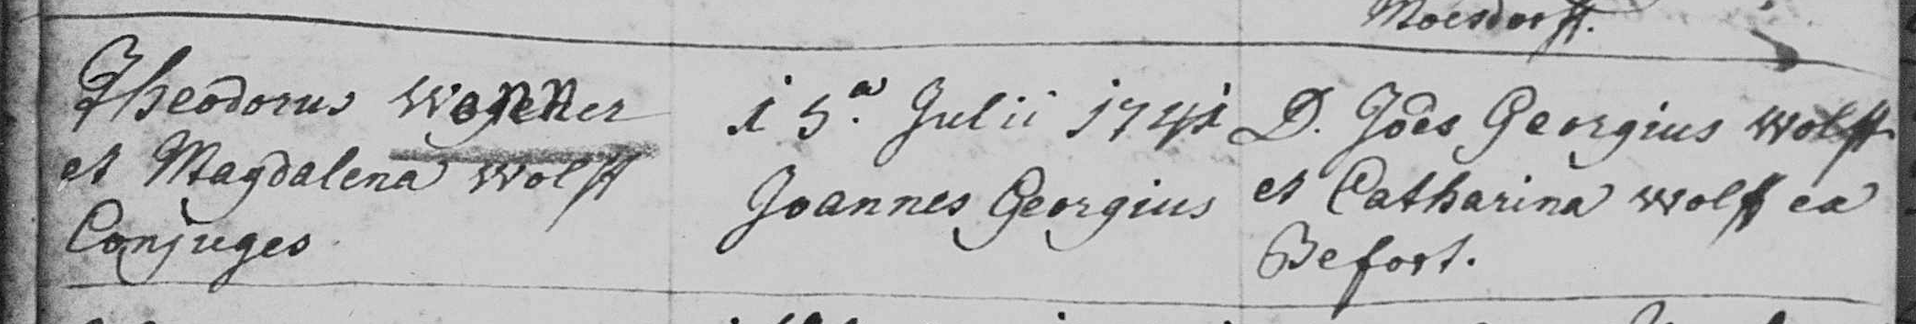 Moesdorff.
Theodorus Wagener
et Magdalena Wolff
Conjuges
15.a Julii 1741
Joannes Georgius
D. Joes Georgius Wolff
et Catharina Wolff ex
Befort.